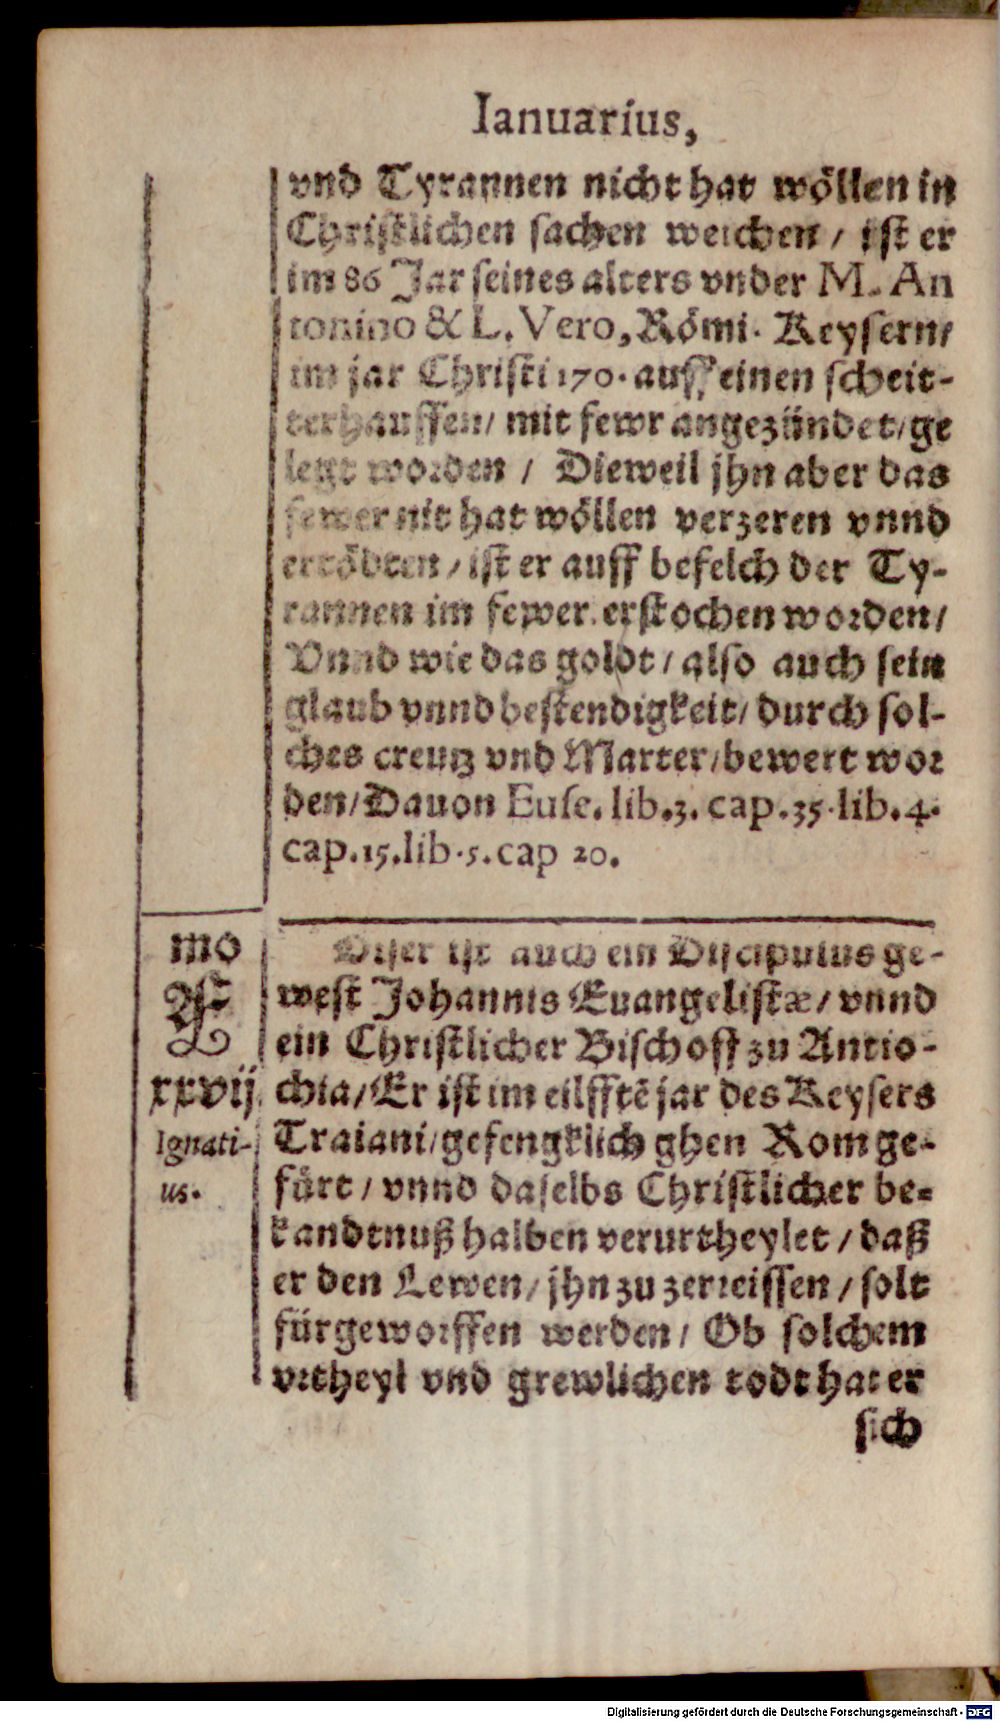 Ianuarius,
vnd Tyrannen nicht hat wöllen in
Christlichen sachen weichen / ist er
im 86 Jar seines alters vnder M. An
tonino & L. Vero, Römi. Keysern/
im jar Christi 170. auff einen scheit-
terhauffen/ mit fewr angezündet/ge
legt worden / Dieweil jhn aber das
fewer nit hat wöllen verzeren vnnd
ertödten / ist er auff befelch der Ty-
rannen im fewer erstochen worden/
Vnnd wie das goldt / also auch sein
glaub vnnd bestendigkeit/ durch sol-
ches creutz vnd Marter/bewert wor
den/Dauon Euse. lib.3. cap.35.lib.4.
cap.15.lib.5.cap 20.
mo
xxvij
Ignati-
us.
Diser ist auch ein Discipulus ge-
west Johannis Euangelistæ / vnnd
ein Christlicher Bischoff zu Antio-
chia/Er ist im eilfftẽ jar des Keysers
Traiani/gefengklich ghen Rom ge-
fürt / vnnd daselbs Christlicher be-
kandtnuß halben verurtheylet / daß
er den Lewen/ jhn zu zerreissen / solt
fürgeworffen werden/ Ob solchem
vrtheyl vnd grewlichen todt hat er
sich
Digitalisierung gefördert durch die Deutsche Forschungsgemeinschaft - DFG